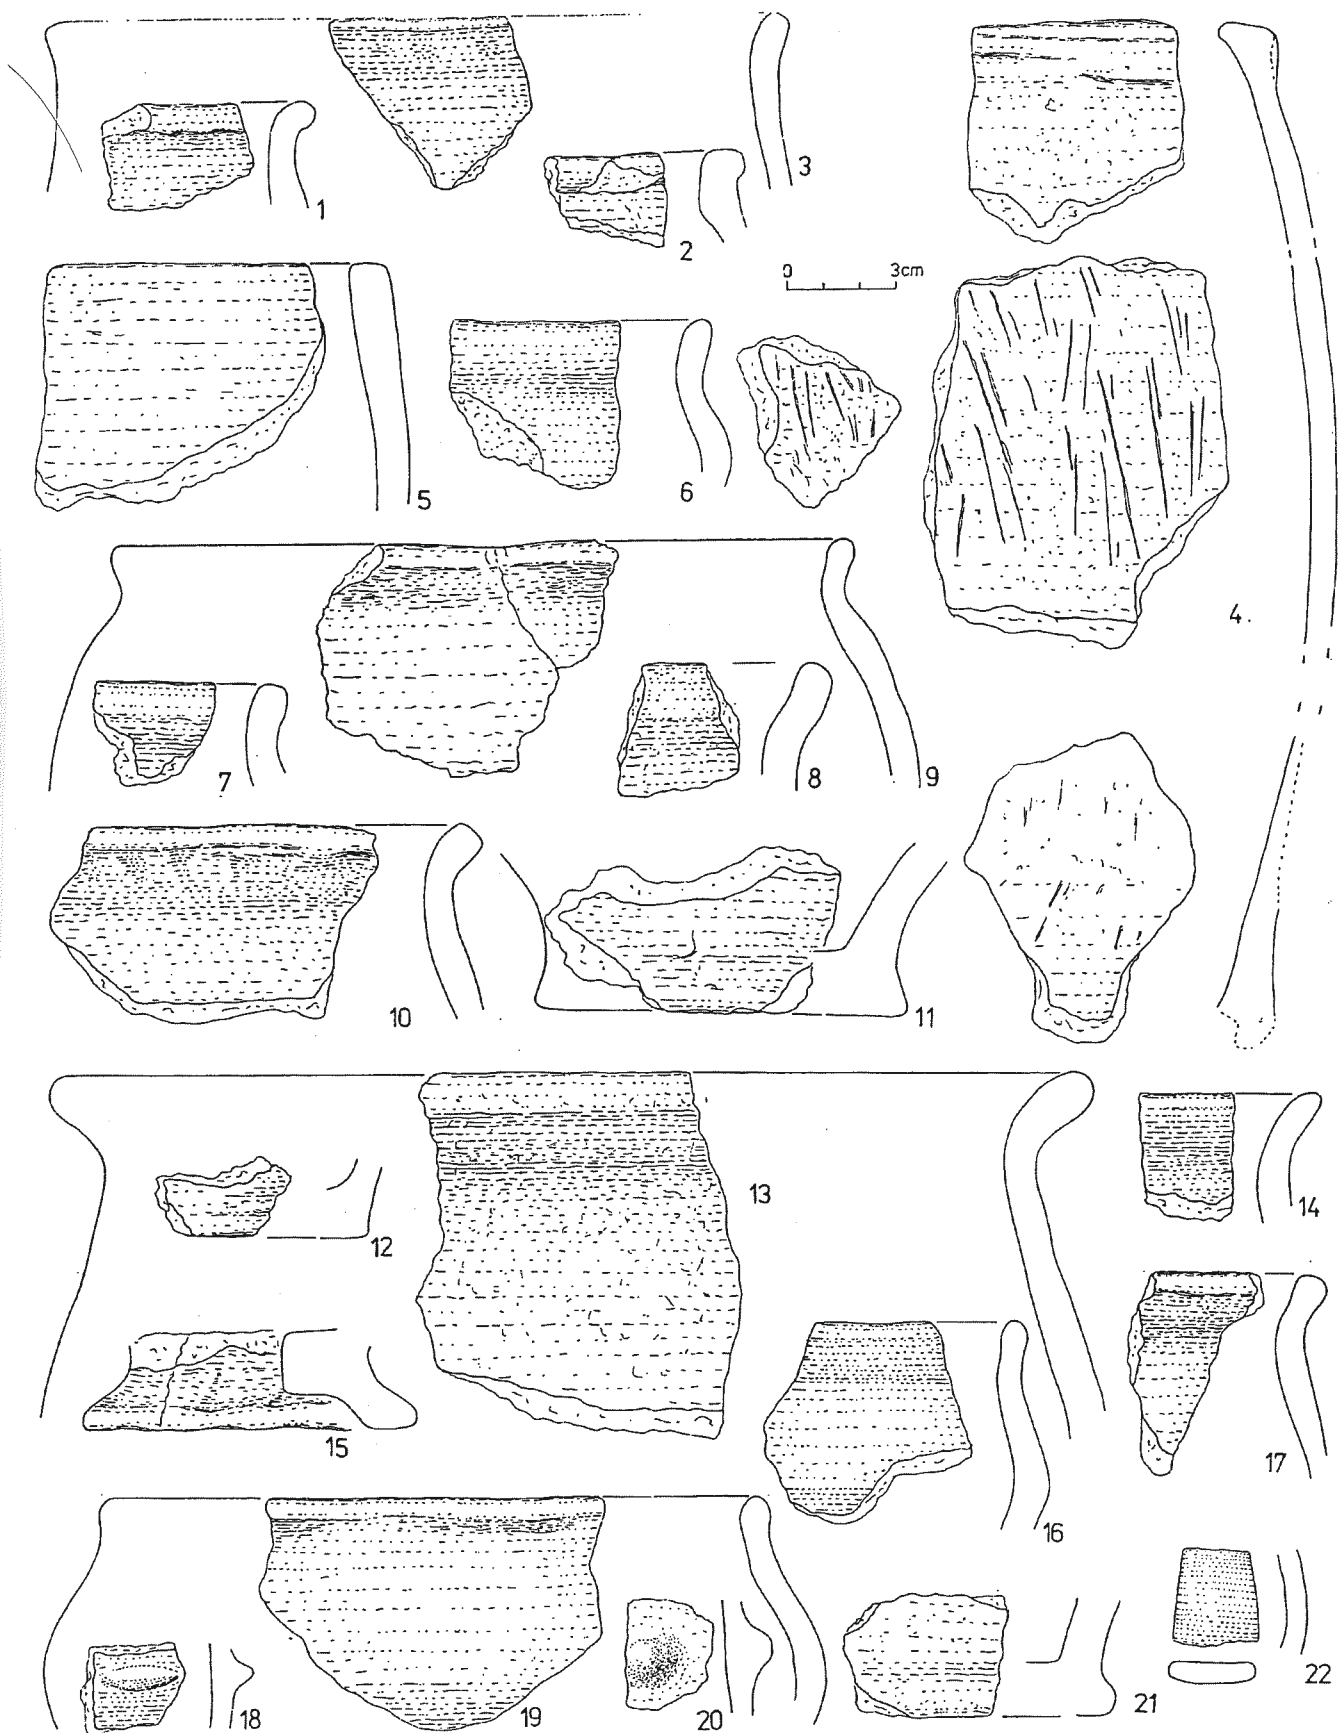 1
2
3
0 3cm
4.
5
6
7
8
9
10
11
12
13
14
15
16
17
18
19
20
21
22